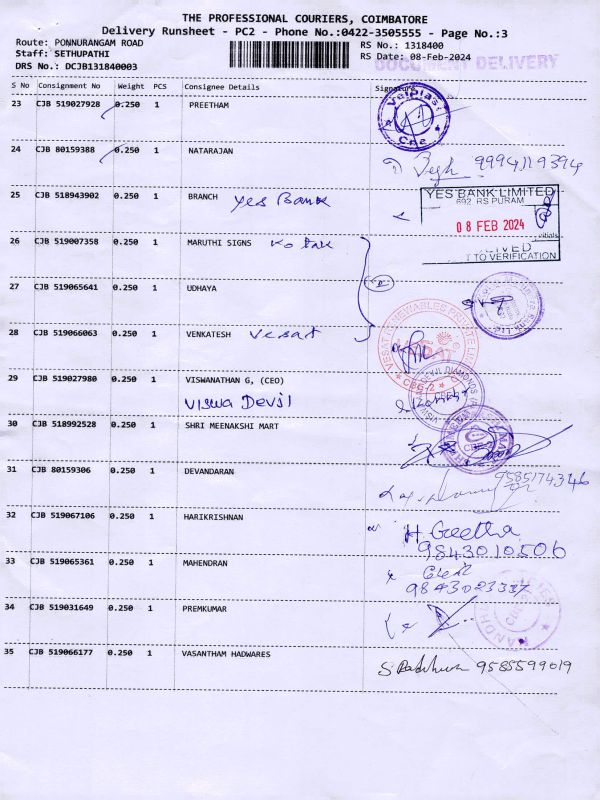 THE PROFESSIONAL COURIERS, COIMBATORE
Delivery Runsheet - PC2 - Phone No.:0422-3505555 - Page No.:3
Route: PONNURANGAM ROAD RS No.: 1318400
Staff: SETHUPATHI RS Date: 08-Feb-2024
DRS No.: DCJB131840003 DOCUMENT DELIVERY
S No Consignment No Weight PCS Consignee Details Signature
23 CJB 519027928 0.250 1 PREETHAM
Velplast
Cbe
24 CJB 80159388 0.250 1 NATARAJAN
9994119394
25 CJB 518943902 0.250 1 BRANCH Yes Bank
YES BANK LIMITED
692 RS PURAM
08 FEB 2024
TO VERIFICATION
26 CJB 519007358 0.250 1 MARUTHI SIGNS
27 CJB 519065641 0.250 1 UDHAYA
28 CJB 519066063 0.250 1 VENKATESH Vesat
29 CJB 519027980 1 VISWANATHAN G, (CEO)
Viswa Devji
30 CJB 518992528 0.250 1 SHRI MEENAKSHI MART
31 CJB 80159306 0.250 1 DEVANDARAN
9585174346
32 CJB 519067106 0.250 1 HARIKRISHNAN
H. Geetha
9843010506
33 CJB 519065361 0.250 1 MAHENDRAN
9843023337
34 CJB 519031649 0.250 1 PREMKUMAR
35 CJB 519066177 0.250 1 VASANTHAM HADWARES
9585599019